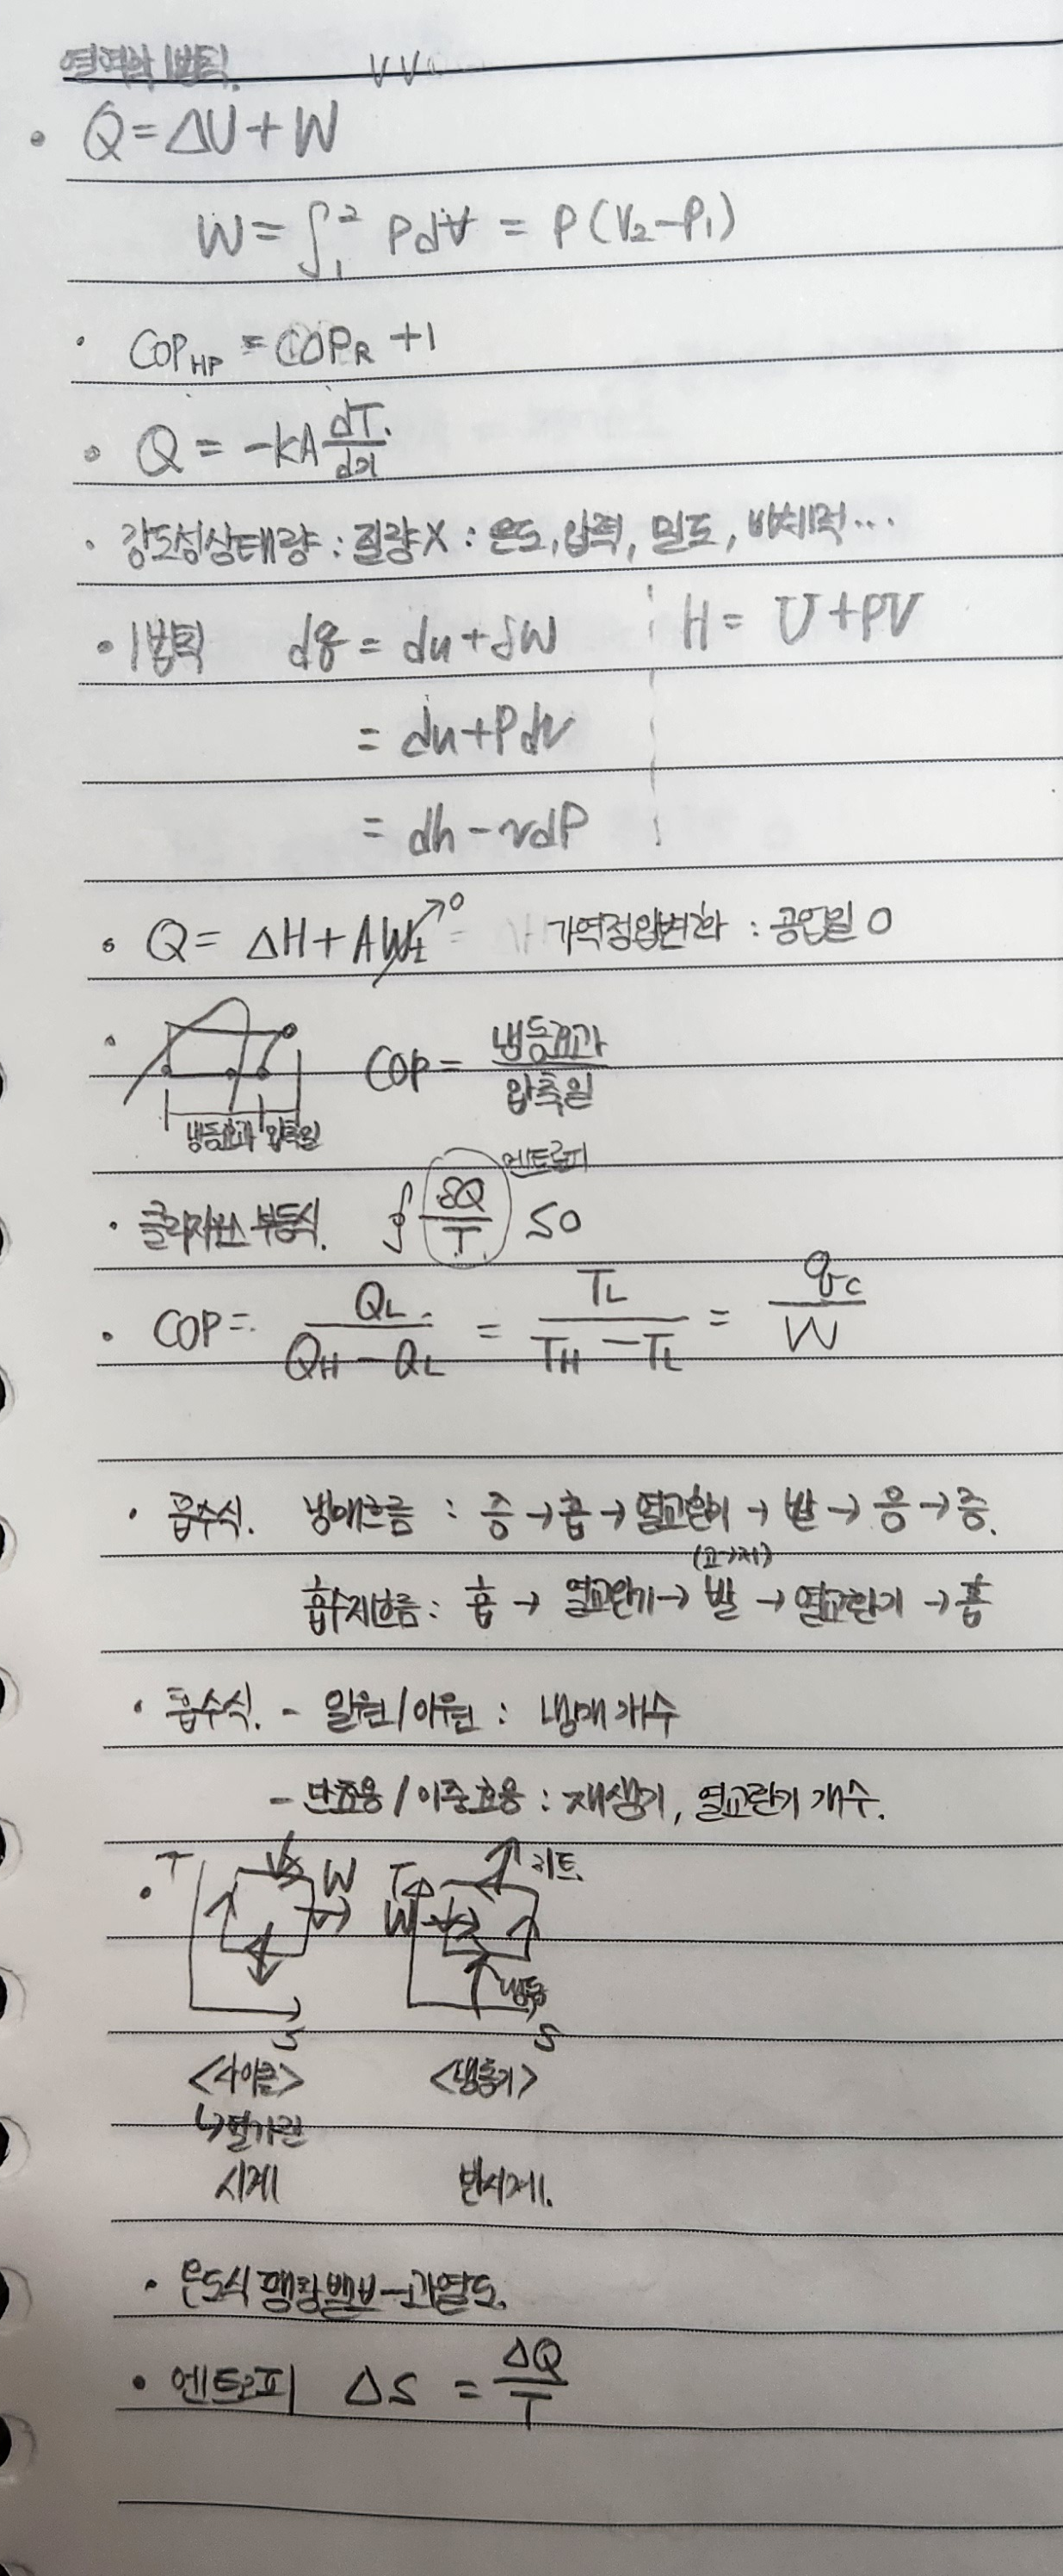 열역학 1법칙.
• Q = ΔU + W
W = ∫₁² PdV = P(V₂-P₁)
• COP_HP = COP_R + 1
• Q = -kA dT/dx
• 강도성상태량 : 질량X : 온도, 압력, 밀도, 비체적...
• 1법칙 dq = du + δW H = U + PV
= du + Pdv
= dh - vdP
• Q = ΔH + AWt→0 가역정압변화 : 공업일 0
• COP = 냉동효과/압축일
냉동효과 압축일
엔트로피
• 클라지우스 부등식. ∮ δQ/T ≤0
• COP = Q_L/(Q_H - Q_L) = T_L/(T_H - T_L) = q_c/W
• 흡수식. 냉매흐름 : 증 → 흡 → 열교환기 → 발 → 응 → 증.
(고→저)
흡수제흐름 : 흡 → 열교환기 → 발 → 열교환기 → 흡
• 흡수식. - 일원/이원 : 냉매 개수
- 단효용 / 이중효용 : 재생기, 열교환기 개수.
• T W T W 히트.
냉동
S S
<사이클> <냉동기>
↳열기관
시계 반시계.
• 온도식 팽창밸브 - 과열도.
• 엔트로피 ΔS = ΔQ/T